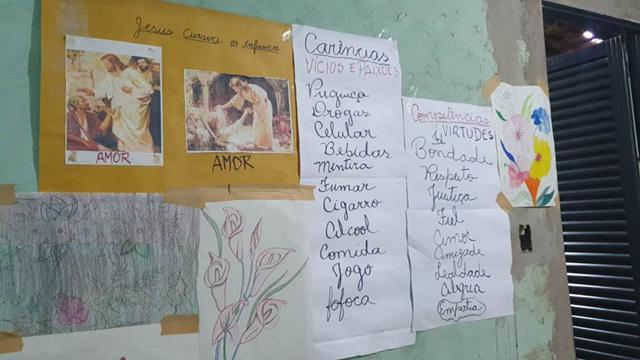 Jesus Curava os enfermos
AMOR
AMOR
Carências
VICIOS E PAIXÕES
Priguiça
Drogas
Celular
Bebidas
Mentira
Fumar
Cigarro
Alcool
Comida
Jogo
fofoca
Competências
VIRTUDES
Fé
Bondade
Respeito
Justiça
Fiel
Amor
Amizade
Lealdade
Alegria
Empatia